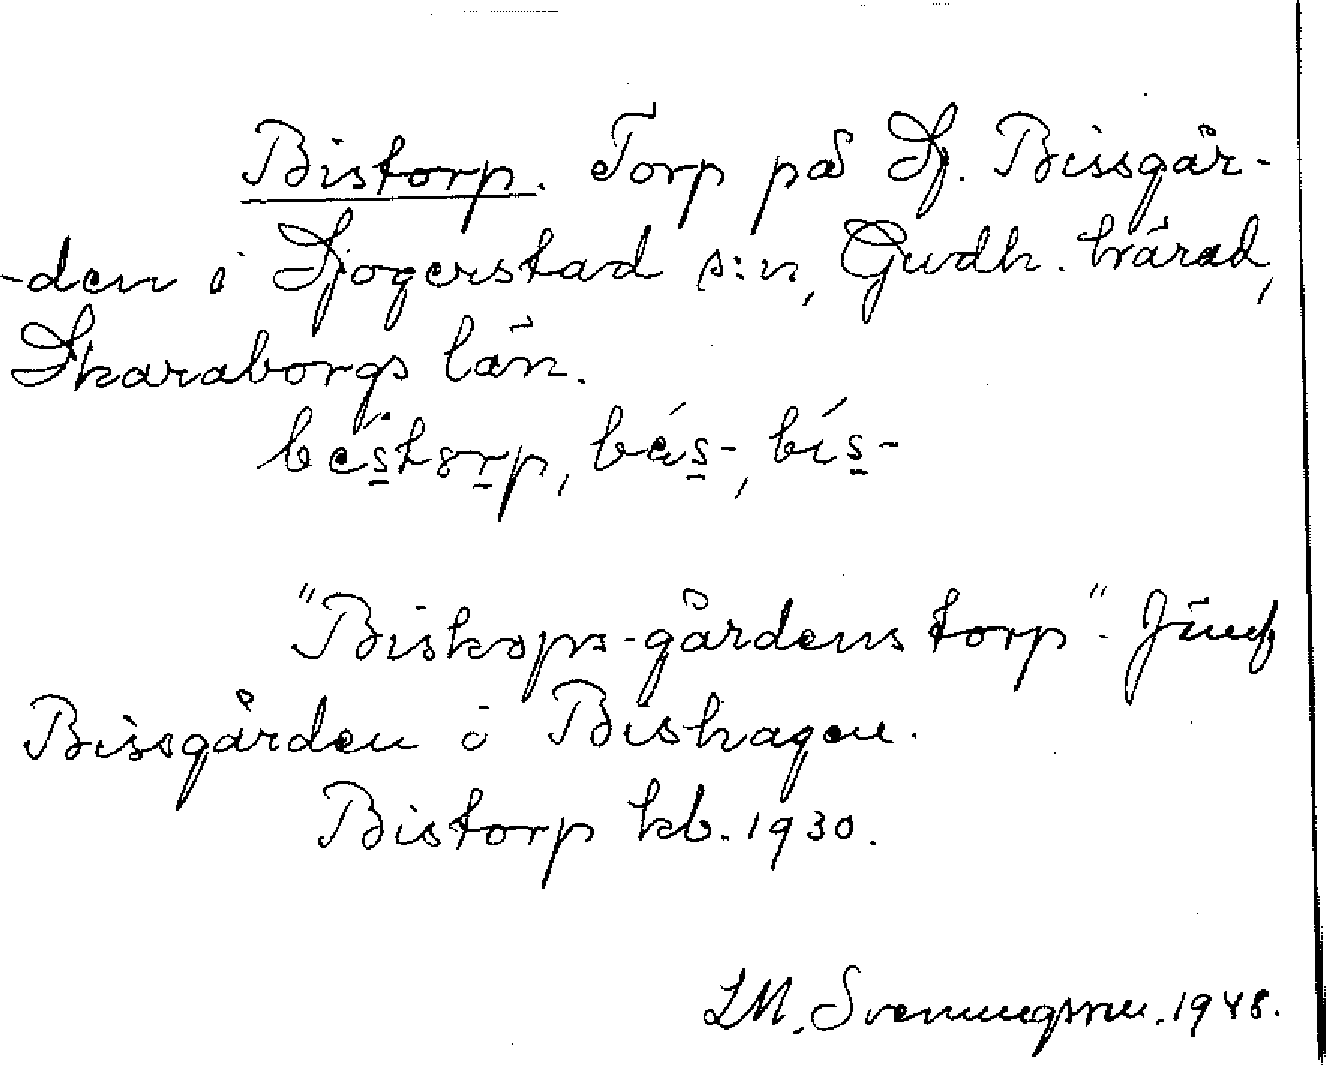 Bistorp. Torp på Sj. Bissgår-
-den i Sjogerstad s:n, Gudh. härad,
Skaraborgs län.
bestorp, bés-, bís-
"Biskops-gårdens torp". Jämf
Bissgården o Bishagen.
Bistorp kb. 1930.
LM. Svenungsson. 1948.